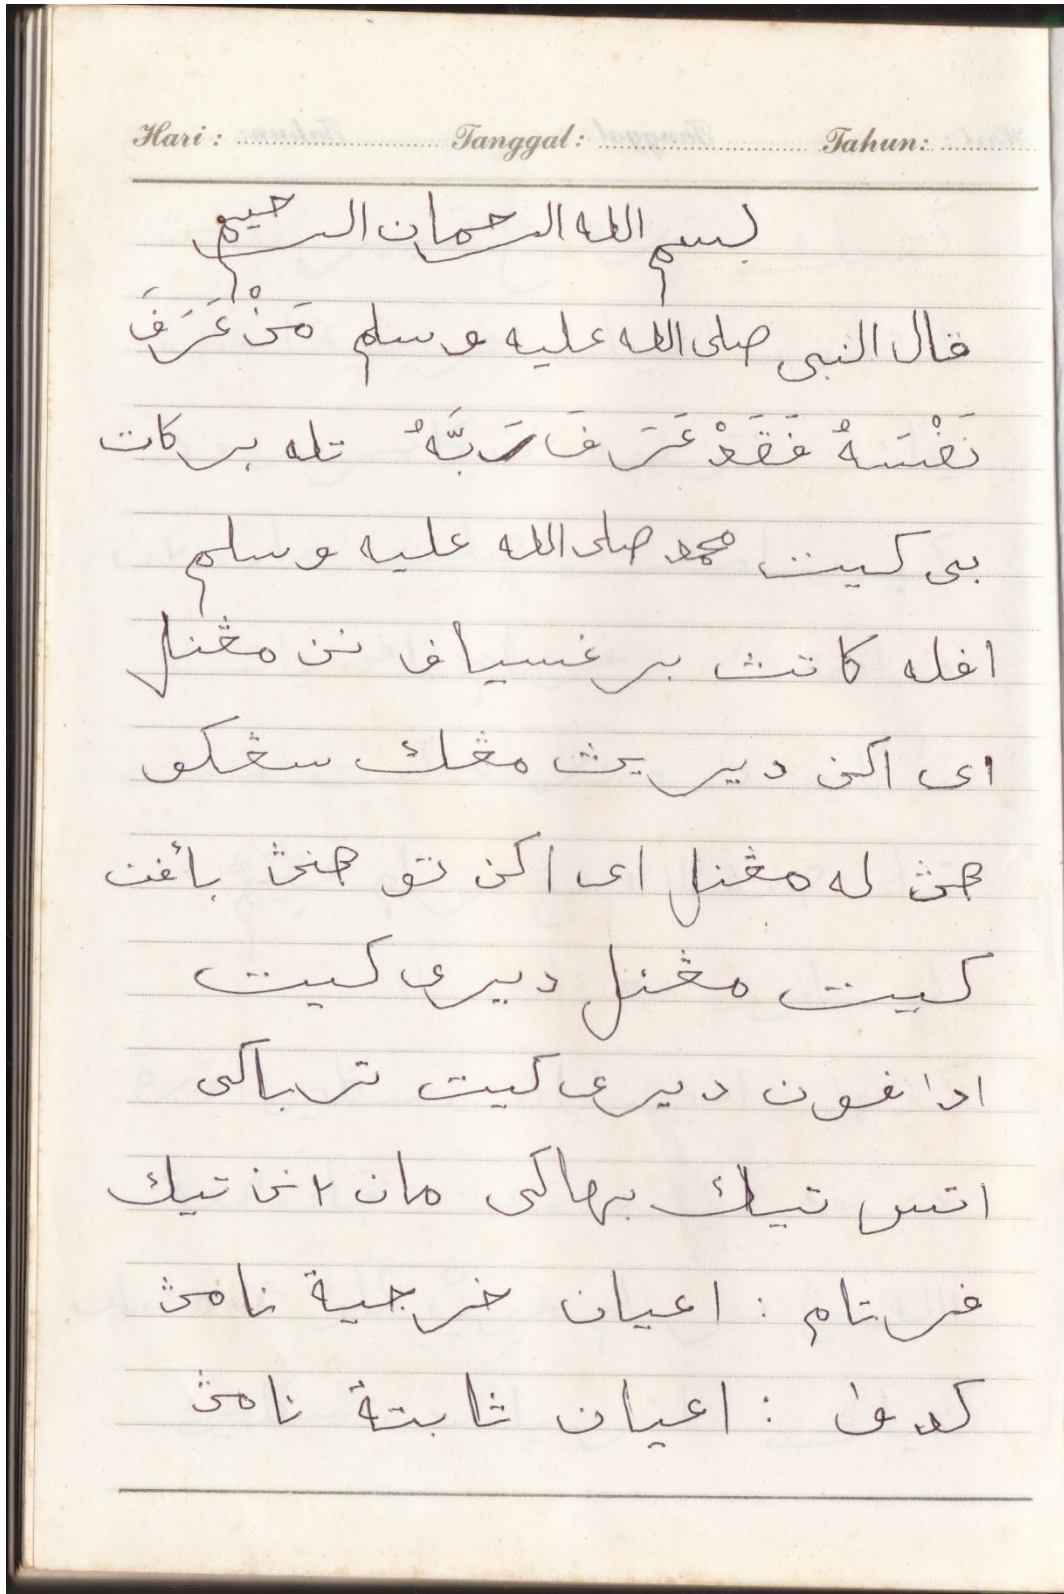 Hari : Tanggal : Tahun:
بسم الله الرحمان الرحيم
قال النبي صلى الله عليه وسلم مَنْ عَرَفَ
نَفْسَهُ فَقَدْ عَرَفَ رَبَّهُ تله بركات
بى كيت محمد صلى الله عليه وسلم
افله كاتڽ برغسياف نن مڠنل
اى اكن ديريڽ مڠك سڠكو
هڽ له مڠنل اى اكن توهنڽ باݢفن
كيت مڠنل ديرى كيت
ادافون ديرى كيت ترباكى
اتس تيݢ بهاكى مان٢نن تيݢ
فرتام : اعيان خرجية نامڽ
كدوا : اعيان ثابتة نامڽ